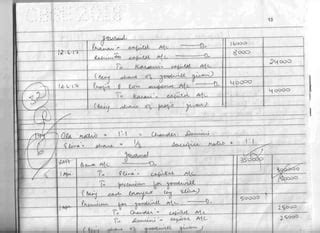 13
Journal
12.6.17 Pranav's capital A/c — Dr. 16000
capital A/c — Dr. 8000
To Karan's capital A/c 24000
(Being share of goodwill given)
12.6.17 Profit & loss suspense A/c — Dr. 40000
To Karan's capital A/c 40000
(Being share of profit given)
Old ratio = 1:1 = Chander Damini
Elina's share = 1/3 Sacrifice ratio = 1:1
Journal
Bank A/c 350000
1 Apr To Elina's capital A/c 300000
To premium for goodwill 50000
(Being cash brought by Elina)
1 Apr Premium for goodwill A/c — Dr. 50000
To Chander's capital A/c 25000
To Damini's capital A/c 25000
(Being share of goodwill given)